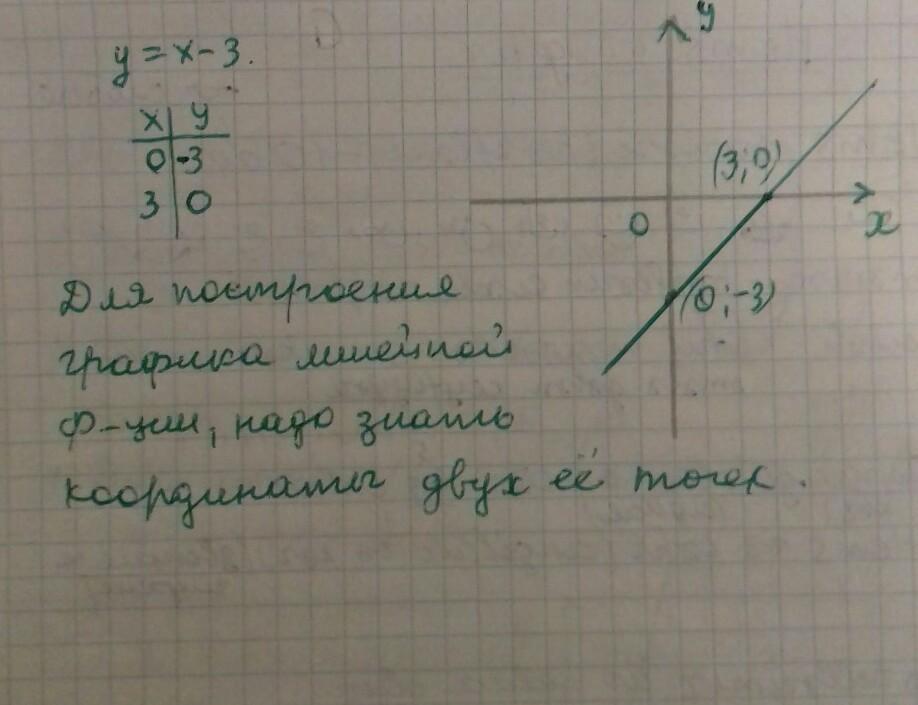 y = x - 3.
x y
0 -3
3 0
y
(3; 0)
0
x
(0; -3)
Для построения
графика линейной
ф-ции, надо знать
координаты двух её точек.